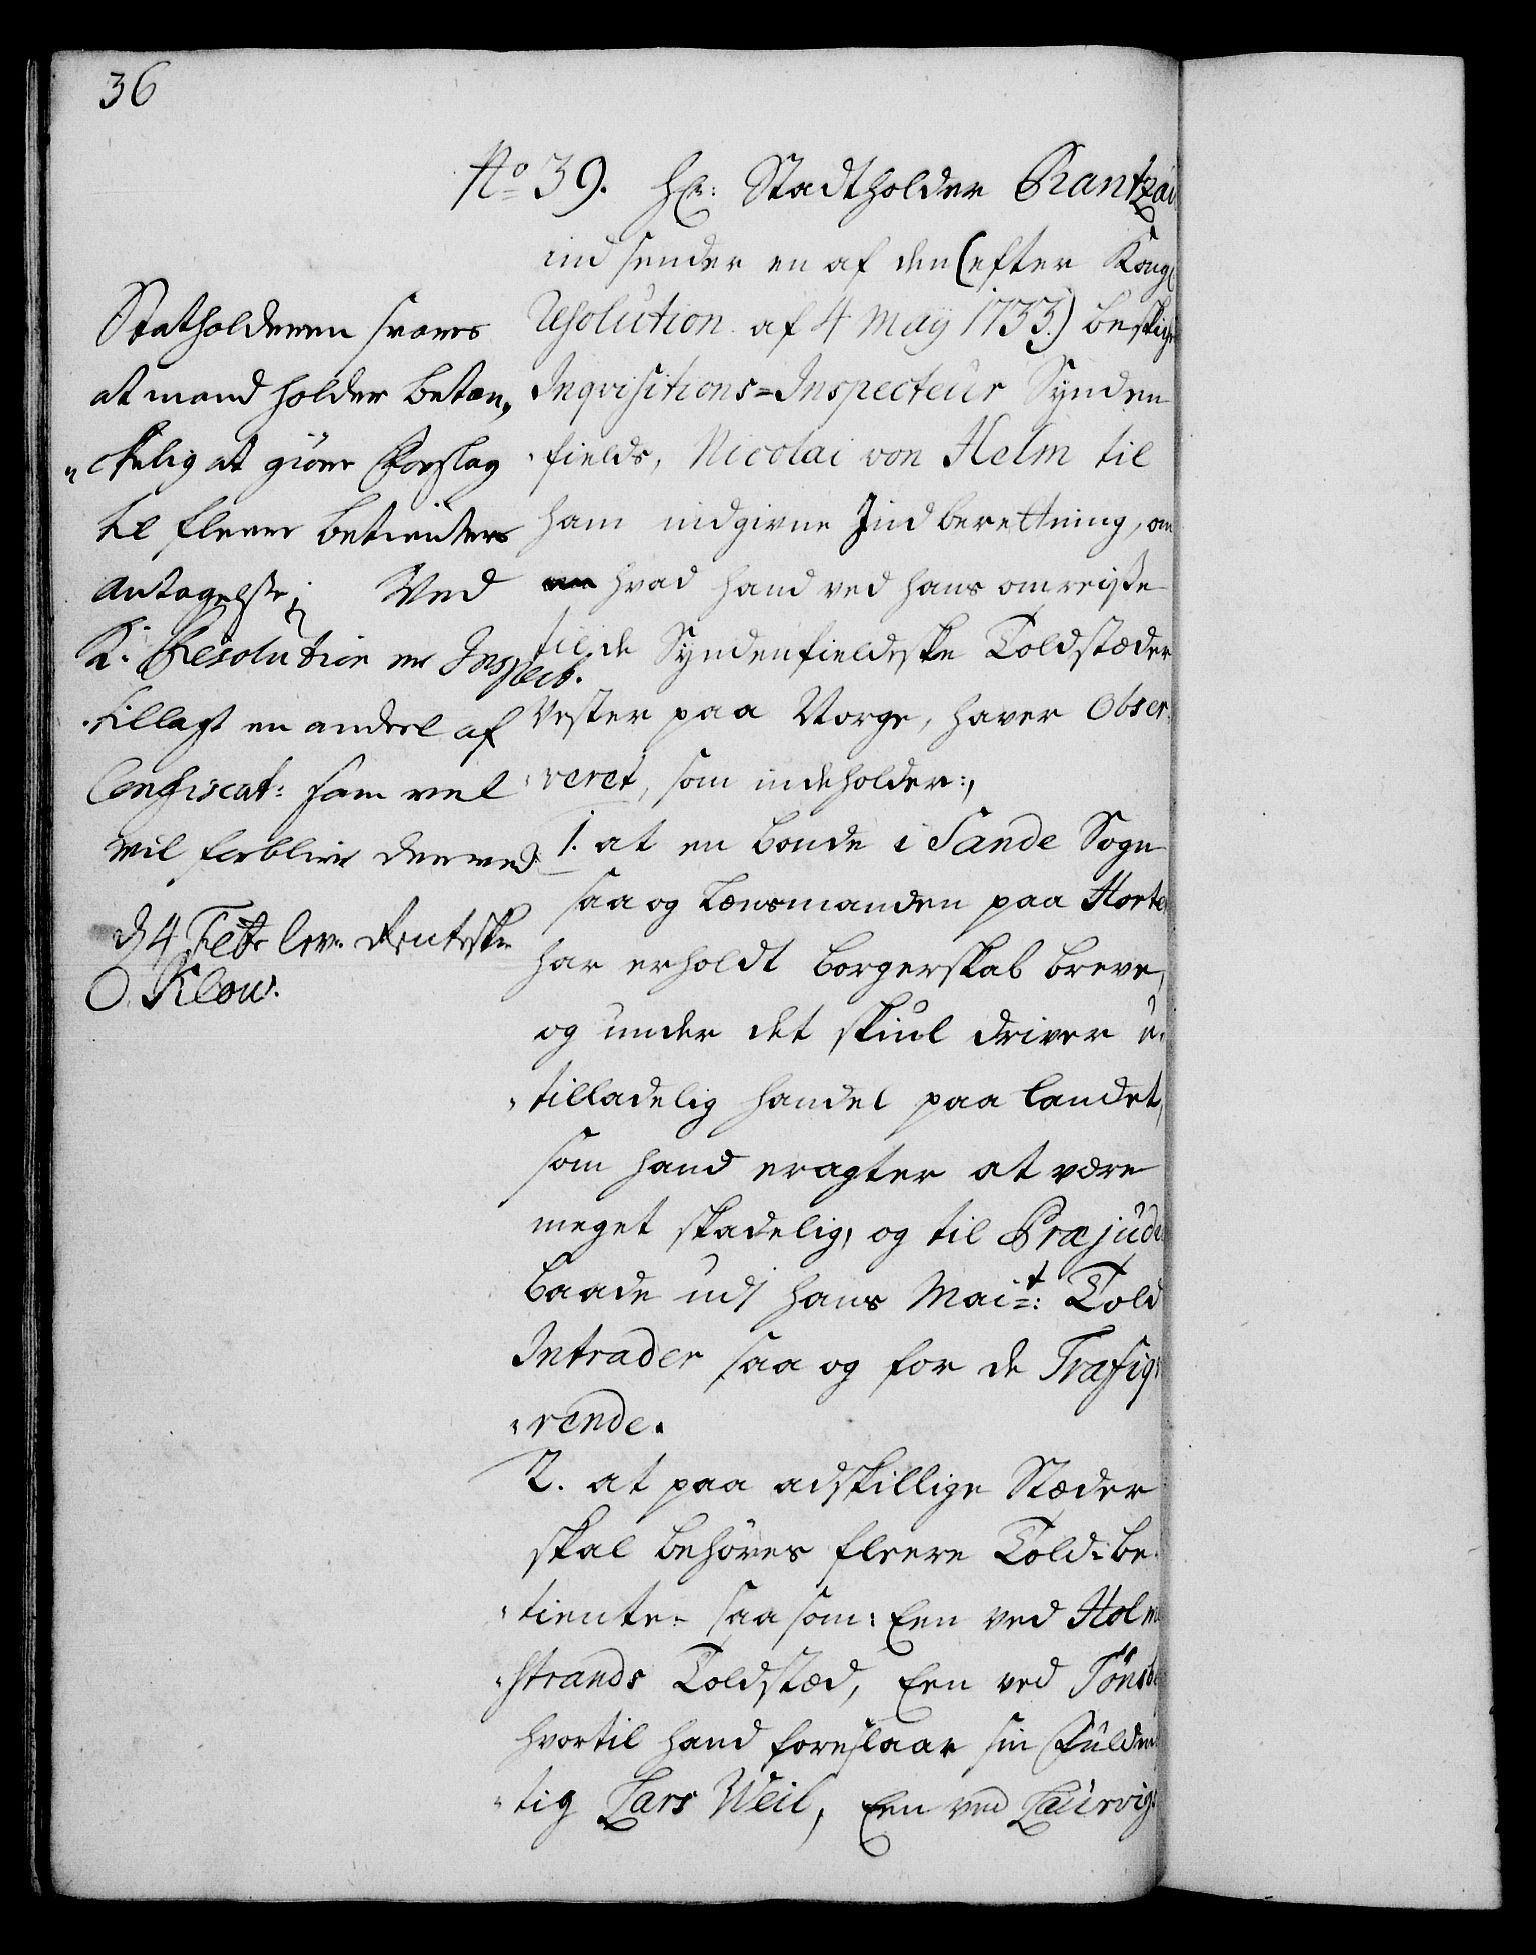 36
No 39. Hr: Stadtholder Rantzau
indsender en af den (efter Kongl
Resolution af 4 Maÿ 1733.) beskik
Inqvisitions=Inspecteur Synden
fields, Nicolai von Helm til
ham indgivne Jndberettning, om
hvad hand ved hans omreise
til de Syndenfieldske Toldstæder
Vester paa Norge, haver Obser
veret, som indeholder:,
1. at en bonde i Sande Sogn
saa og Lænsmanden paa Horte
har erholdt borgerskab breve,
og under det skiul driver u
tilladelig handel paa Landet,
som hand eragter at være
meget skadelig, og til Præjude
baade udj hans Mait: Told
Intrader saa og for de Trafiqv
rende.
2. at paa adskillige Stæder
skal behöves fleere Told=be
tiente saasom: Een ved Holm
strands Toldstæd, Een ved Tönsb
hvortil hand foreslaar sin Fuldm
tig Lars Weil, Een ved Laurvigs
Statholderen svares
at mand holder betæn„
„ckelig at giöre Forslag
til fleere betienters
antagelse; Ved
K: Resolution er Inspect.
tillagt en andeel af
Confiscat: som vel
vil forblive derved
d 4 Febr lev. Renteskr
O. Klow.